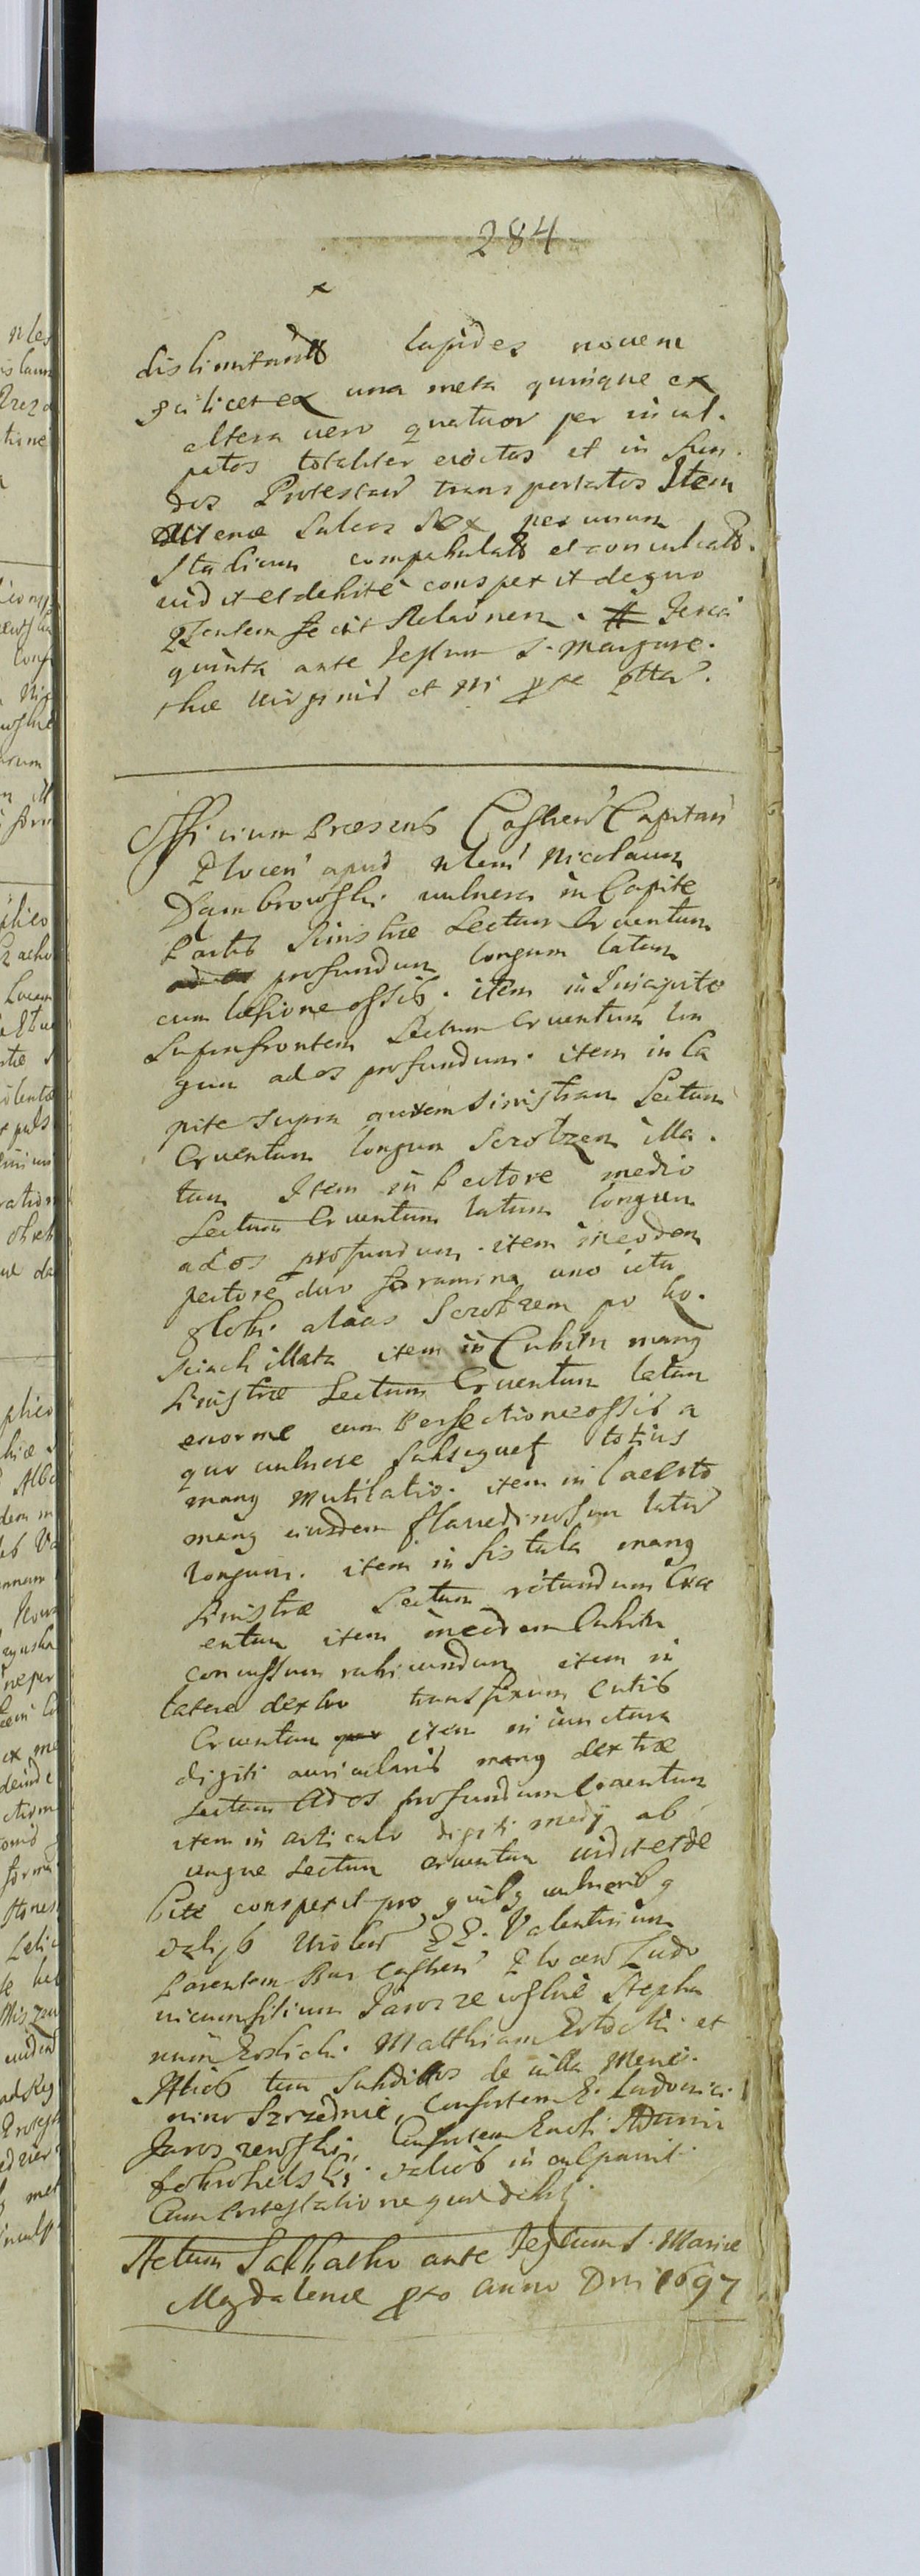 284
dislimitandt lapides novem
scilicet ex una meta quinque ex
altera vero quatuor per incul.
patos totaliter erectos et in fun.
dos Protestan transportatos Item
avenæ sulcos sex per unum
stadium compabulat et conculcat.
vidit et debite conspexit de quo
Pntem fecit Relaonem. # Feria
quinta ante festum S. Margare.
thæ virginis et m pxe ptta.
Officium Præsens Castren Capitan
Plocen apud nlem Nicolaum
Dambrowski vulnera in Capite
Partis sinistræ sectum Cruentum
profundum longum latum
cum læsione ossis. item in Sincipite
supra frontem sectum cruentum lon
gum ad os profundum. item in Ca
pite supra aurem sinistram sectum
Cruentum longum Szrotzem illa.
tum Item in Pectore medio
sectum Cruentum latum longum
ad os profundum. item in eodem
pectore duo foramina uno ictu
globi alias Szrotzem po ko.
sciach illata item in Cubitu manq
sinistræ sectum Cruentum latum
enorme cum Persectione ossis a
quo vulnere subsequet totius
manq mutilatio. item in Lacerto
manq eiusdem flavedinosum latum
longum. item in fistula manq
sinistræ sectum rotundum Cru
entum item in eodem Cubitu
concussum rubicundum item in
latere dextro transfixum Cutis
Cruentum item in iunctura
digiti auricularis manq dextræ
sectum Ad os profundum Cruentum
item in articulo digiti medij ab
ungue sectum cruentum vidit et de
bite conspexit pro quibq vulneribq
valijs violen PP. Valentinum
Parentem Bur Castren Plocen Ludo
vicum filium Jaroszewskie Stepha
num Matthiam et
Alios tum subditos de villa
nino Szrzednie, Consortem P. Ludovici
Jaroszewski, Consortem
valios in culpavit
Cum Protestatione qua debit
Actum Sabbatho ante festum S. Mariæ
Magdalenæ pxo anno Dni 1697